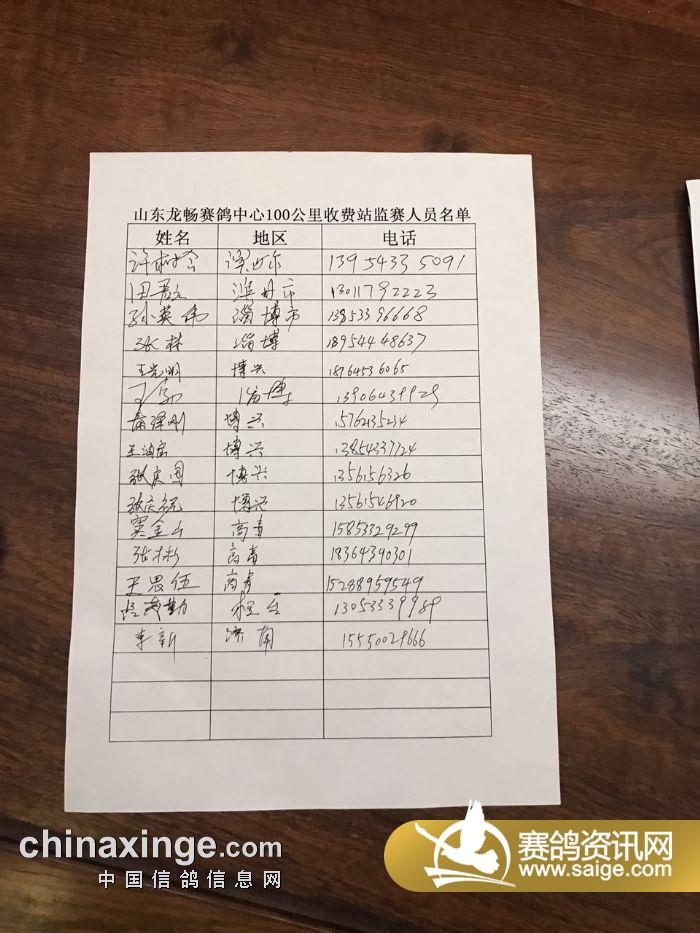 山东龙畅赛鸽中心100公里收费站监赛人员名单
姓名 地区 电话
13954335091
田 潍坊市 13011792223
孙英伟 淄博市 13853396668
张林 淄博 18954448637
王光明 博兴 18764536065
淄博 13906439929
刚 博兴 15762135234
王 博兴 13854337724
张庆国 博兴 1356156326
张庆 博兴 13561546920
窦金山 高青 15853329299
张彬 高青 18364390301
王思伍 高青 15288959549
勤 桓台 13053339989
李新 济南 15550029666
chinaxinge.com
中国信鸽信息网
赛鸽资讯网
www.saige.com